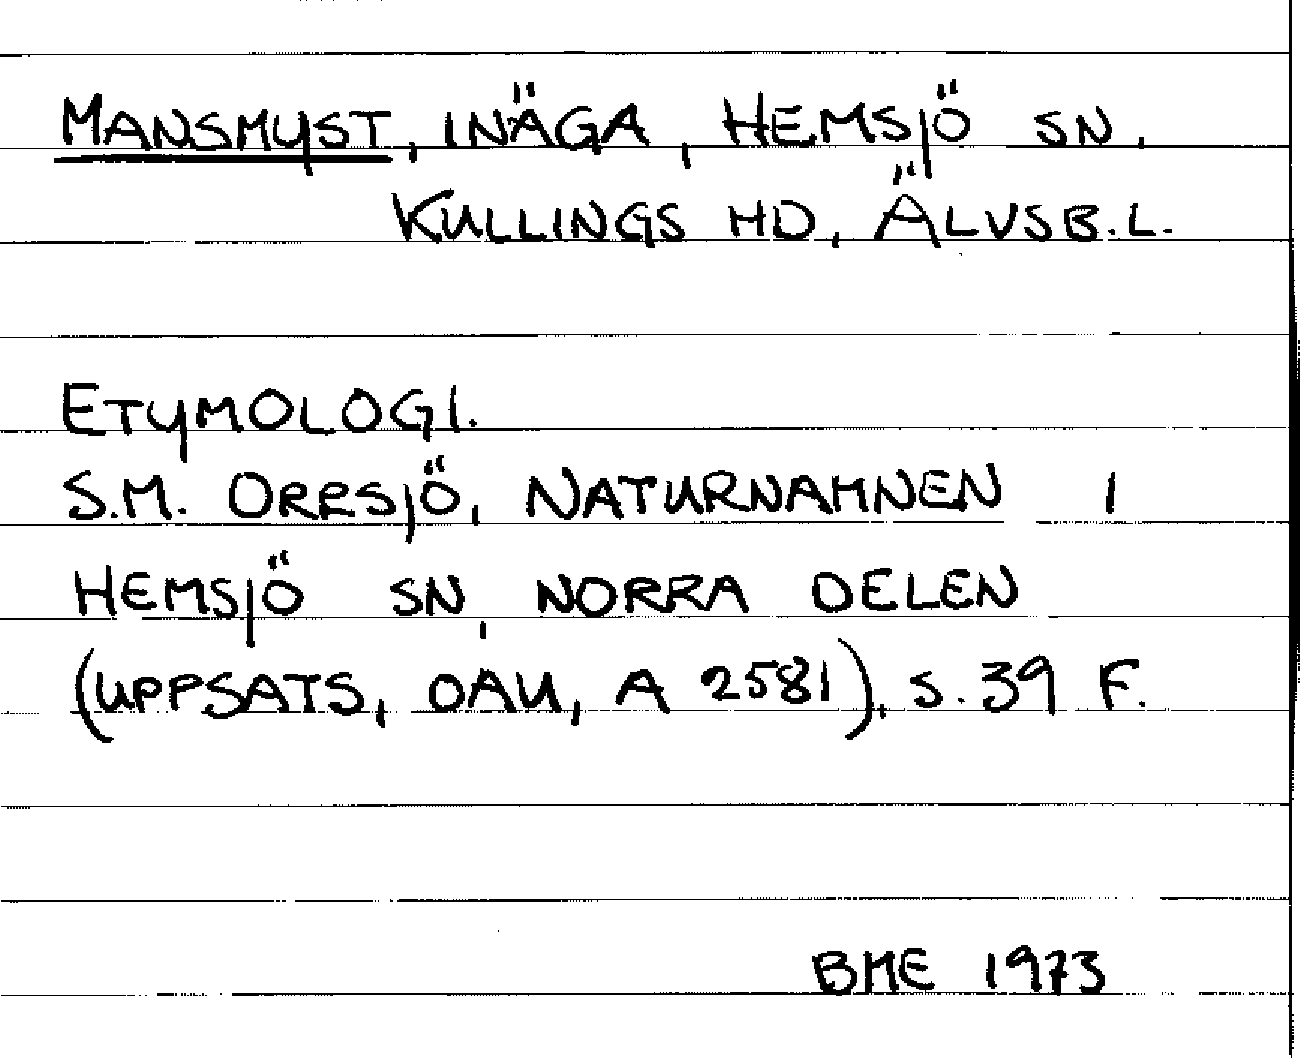 MANSMYST, INÄGA, HEMSJÖ SN,
KULLINGS HD, ÄLVSB.L.
ETYMOLOGI.
S.M. ORRSJÖ, NATURNAMNEN I
HEMSJÖ SN, NORRA DELEN
(UPPSATS, OAU, A 2581), S. 39 F.
BME 1973